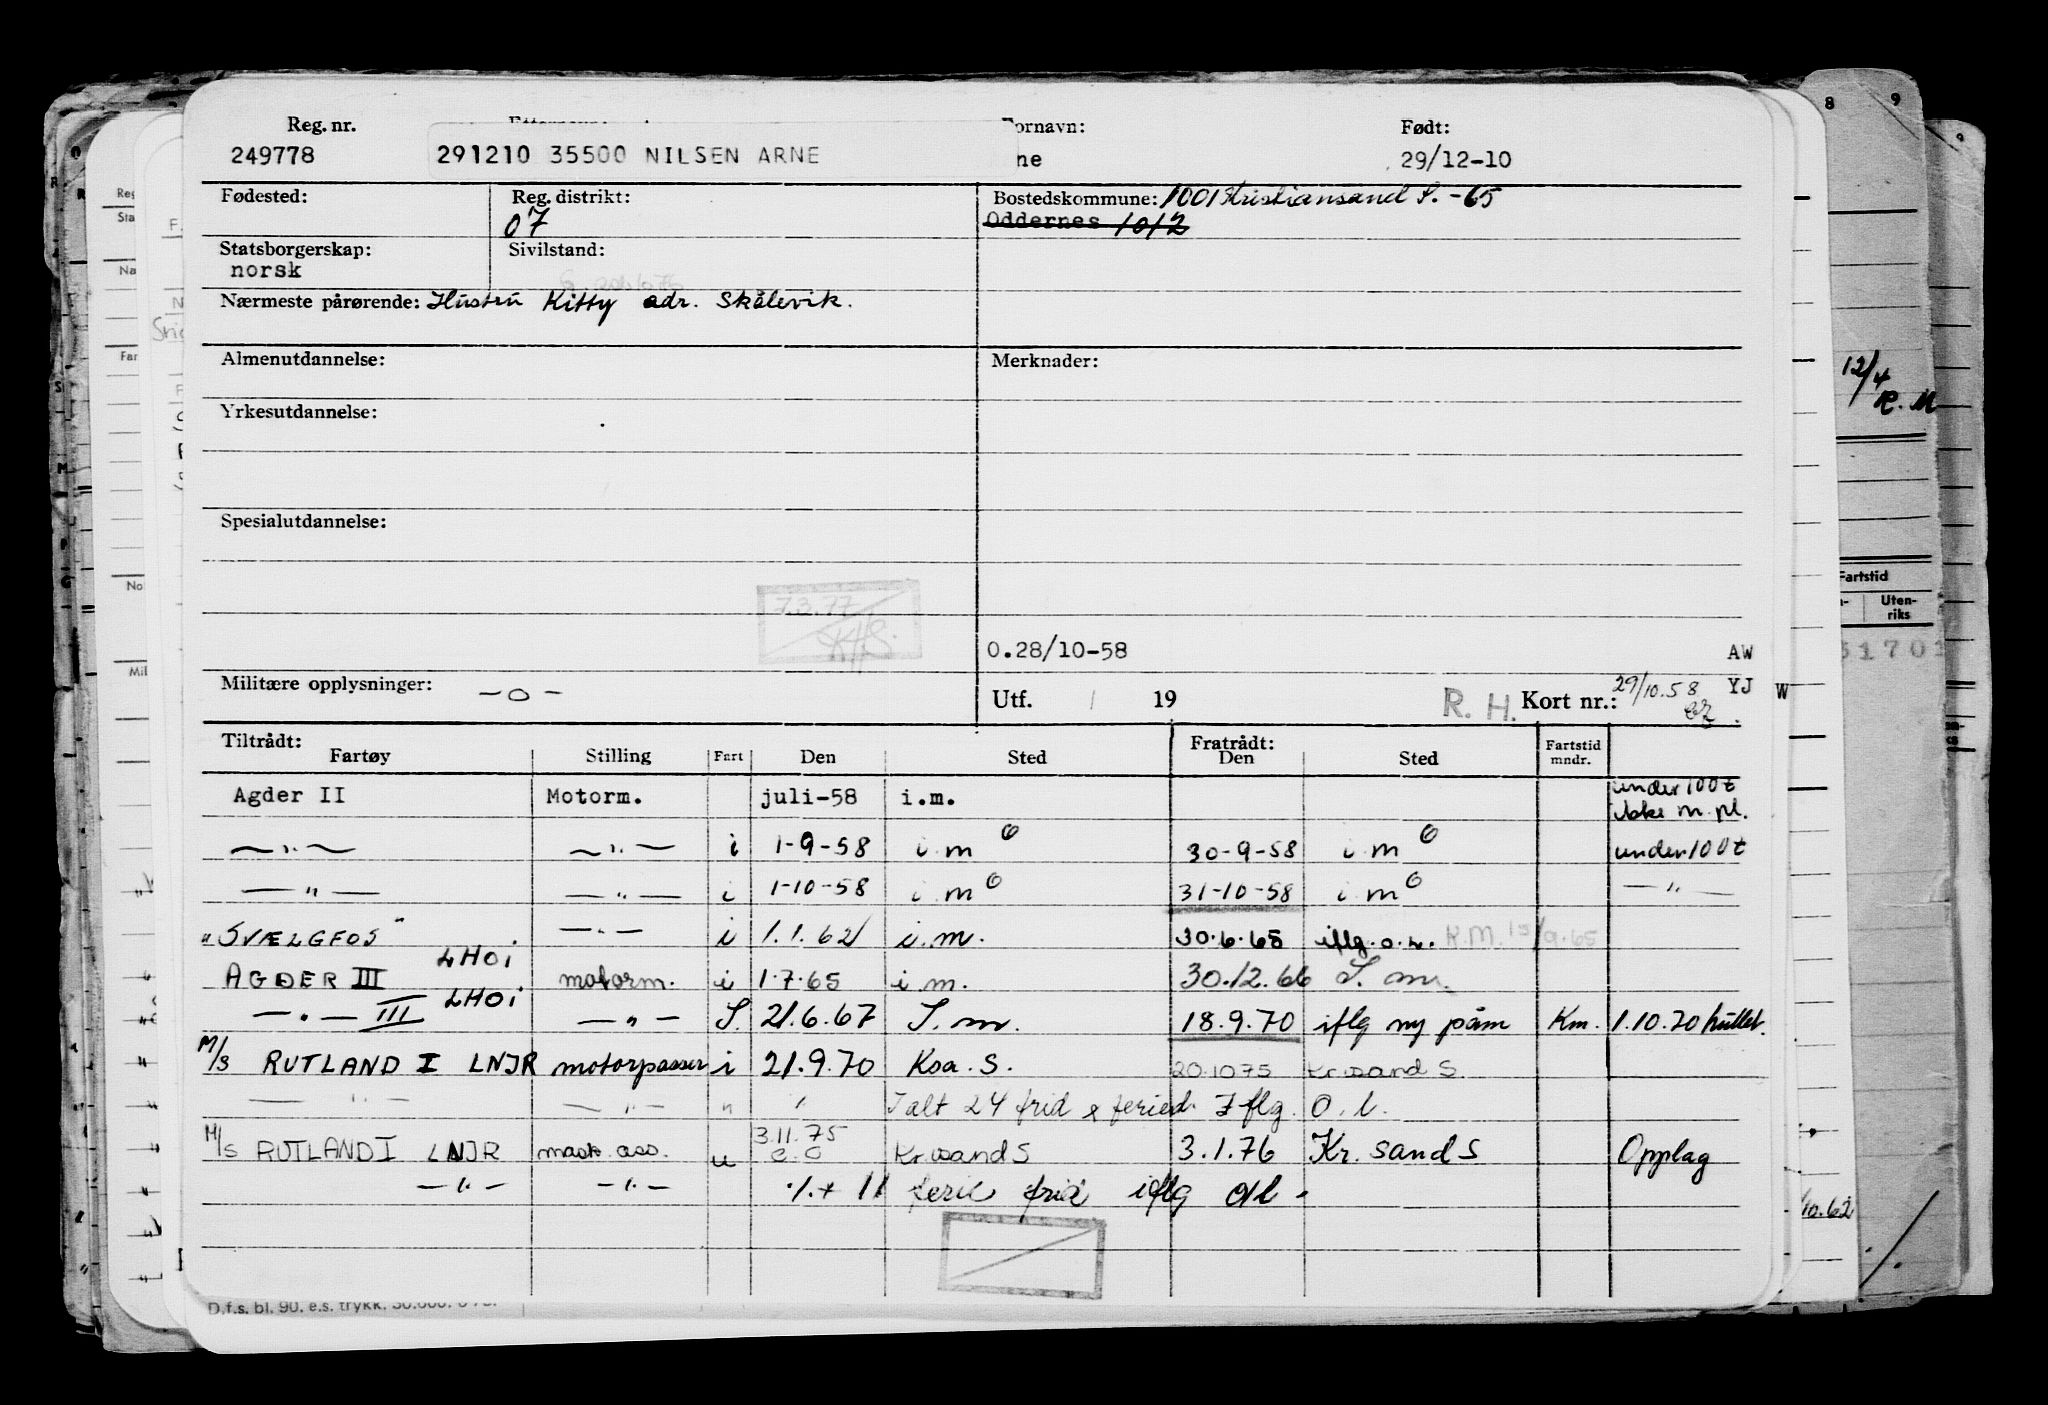 Reg. nr. Fornavn: Født:
249778 291210 35500 NILSEN ARNE ne 29/12-10
Fødested: Reg. distrikt: 07 Bostedskommune: 1001 Kristiansand S. -65
Oddernes 1012
Statsborgerskap: norsk Sivilstand:
Nærmeste pårørende: Hustru Kitty adr. Skålevik.
Almenutdannelse: Merknader:
Yrkesutdannelse:
Spesialutdannelse:
7.3.77
0.28/10-58 AW
Militære opplysninger: -o- Utf. 19 R. H. Kort nr.: 29/10.58 YJ W
Tiltrådt: Fratrådt: Fartstid
Fartøy Stilling Fart Den Sted Den Sted mndr.
Agder II Motorm. juli-58 i.m. under 100t ikke m. pl.
—"— —"— i 1-9-58 i.m 30-9-58 i.m under 100t
—"— —"— i 1-10-58 i.m 31-10-58 i.m —"—
"SVÆLGFOS" —"— i 1.1.62 i.m. 30.6.65 iflg. o.l. R.M. 15/9.65
AGDER III LHOI motorm. i 1.7.65 i.m. 30.12.66 S. m.
—"— III LHOI —"— S. 21.6.67 S. m. 18.9.70 iflg ny påm Km. 1.10.70 hullet.
M/S RUTLAND I LNJR motorpasser i 21.9.70 Ksa. S. 20.10 75 Kr.sand S.
—"— —"— " Ialt 24 frid & feried. Iflg. O.l.
M/S RUTLAND I LNJR mask. ass. u 3.11.75 Kr.sand S 3.1.76 Kr. sand S Opplag
—"— —"— ·/. + 11 ferie frid iflg Ol.
D.f.s. bl. 90. e.s. trykk.
8 9
12/4
R. M
Fartstid
Uten-
riks
10.62